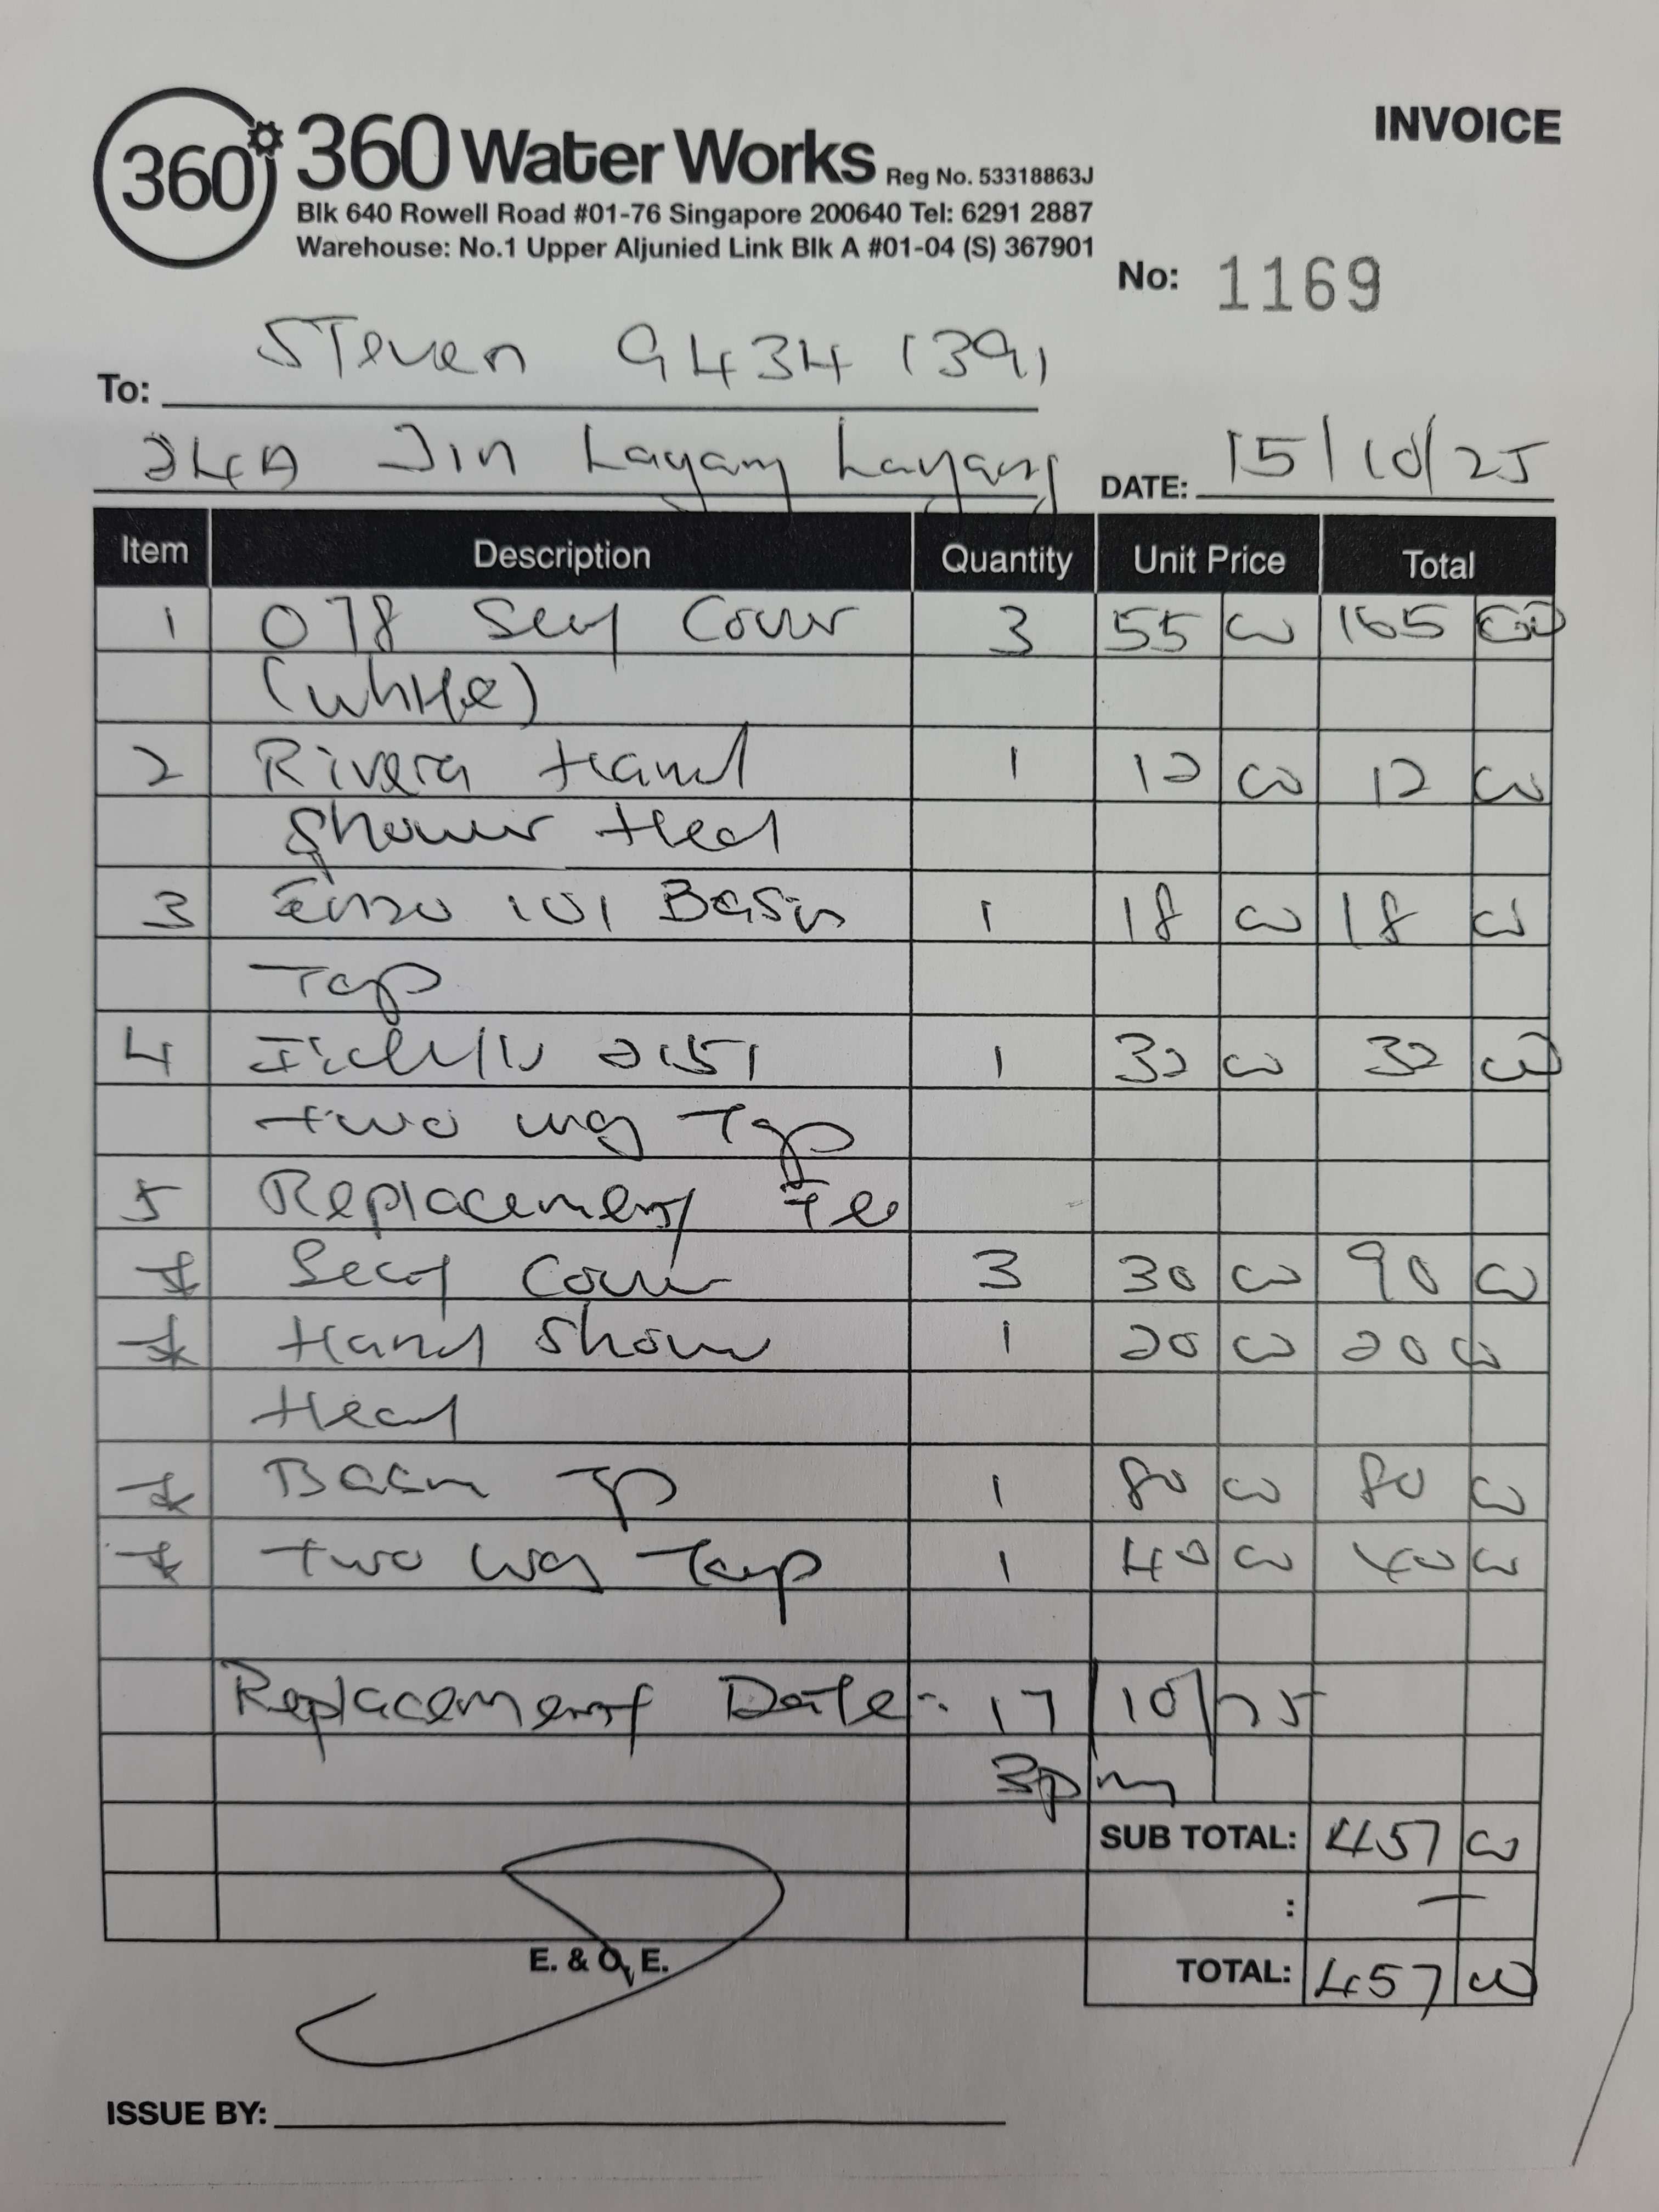 360°
360 Water Works Reg No. 53318863J
INVOICE
Blk 640 Rowell Road #01-76 Singapore 200640 Tel: 6291 2887
Warehouse: No.1 Upper Aljunied Link Blk A #01-04 (S) 367901
No: 1169
To: Steven 9434 1391
24A Jln Layang Layang DATE: 15/10/25
Item Description Quantity Unit Price Total
1 078 Seat Cover 3 55 00 165 00
(White)
2 Rivera Hand 1 12 00 12 00
Shower Head
3 Enzo 101 Basin 1 18 00 18 00
Tap
4 2151 1 32 00 32 00
Two way Tap
5 Replacement Fee
* Seat Cover 3 30 00 90 00
* Hand Shower 1 20 00 20 00
Head
* Basin Tap 1 80 00 80 00
* Two way Tap 1 40 00 40 00
Replacement Date:- 17/10/25
3pm
SUB TOTAL: 457 00
: —
E. & O. E.
TOTAL: 457 00
ISSUE BY: